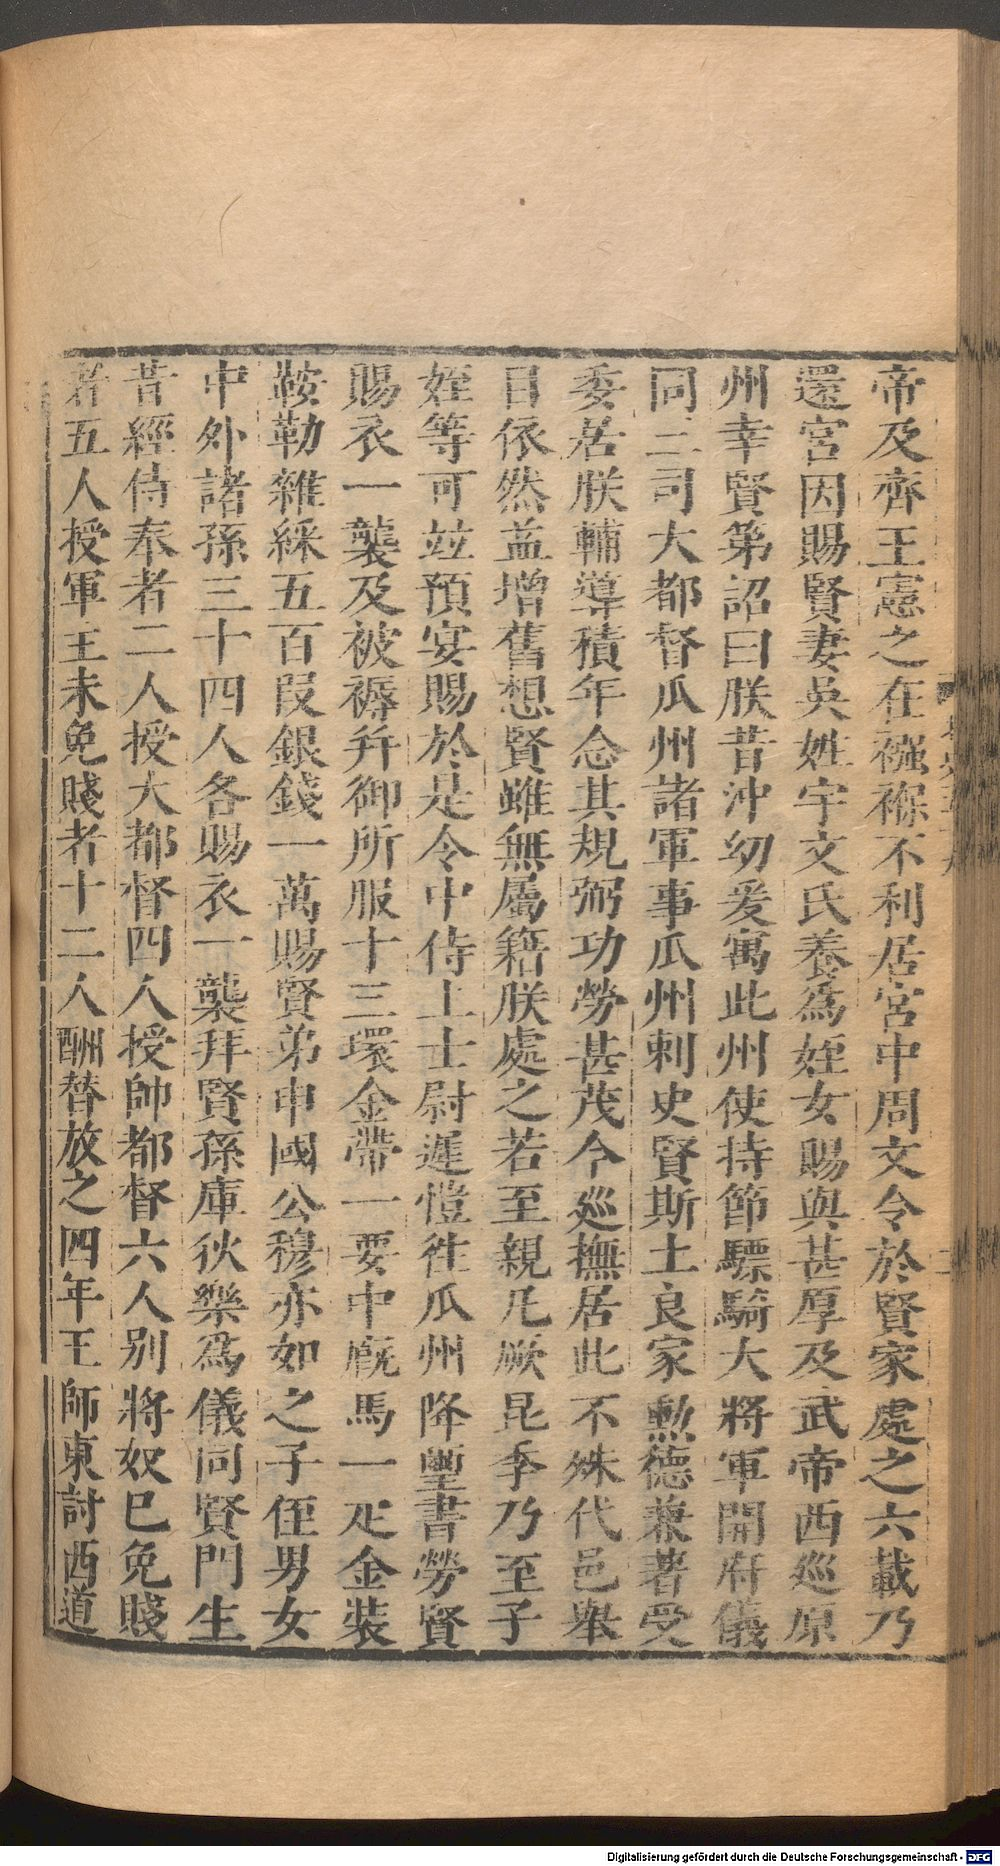 帝及齊王憲之在襁褓不利居宮中周文令於賢家處之六載乃
還宮因賜賢妻吳姓宇文氏養爲姪女賜與甚厚及武帝西巡原
州幸賢第詔曰朕昔沖幼爰寓此州使持節驃騎大將軍開府儀
同三司大都督瓜州諸軍事瓜州刺史賢斯土良家勲德兼著受
委居朕輔導積年念其規弼功勞甚茂今巡撫居此不殊代邑舉
目依然益增舊想賢雖無屬籍朕處之若至親凡厥昆季乃至子
姪等可竝預宴賜於是令中侍上士尉遲愷徃瓜州降璽書勞賢
賜衣一襲及被褥并御所服十三環金帶一要中廐馬一疋金裝
鞍勒雜綵五百段銀錢一萬賜賢弟申國公穆亦如之子侄男女
中外諸孫三十四人各賜衣一襲拜賢孫庫狄樂爲儀同賢門生
昔經侍奉者二人授大都督四人授帥都督六人别將奴已免賤
者五人授軍主未免賤者十二人酬替放之四年王師東討西道
Digitalisierung gefördert durch die Deutsche Forschungsgemeinschaft - DFG